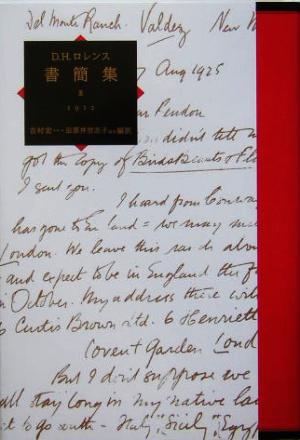 Del Monte Ranch. Valdez. New
7 Aug 1925
D.H.ロレンス
書簡集
Ⅲ
1912
吉村宏一 田部井世志子 編訳
ear Pendon
didn't tell
got the copy of Birds Beasts & Fl
I sent you.
I heard from Conway
has gone to
land = we may
London. We leave this ranch abou
and expect to be in England the f
in October. My address there will
Curtis Brown Ltd. 6 Henriett
Covent Garden Lond
But I don't suppose we
all stay long in my native lan
t to go south - Italy, Sicily, Egyp